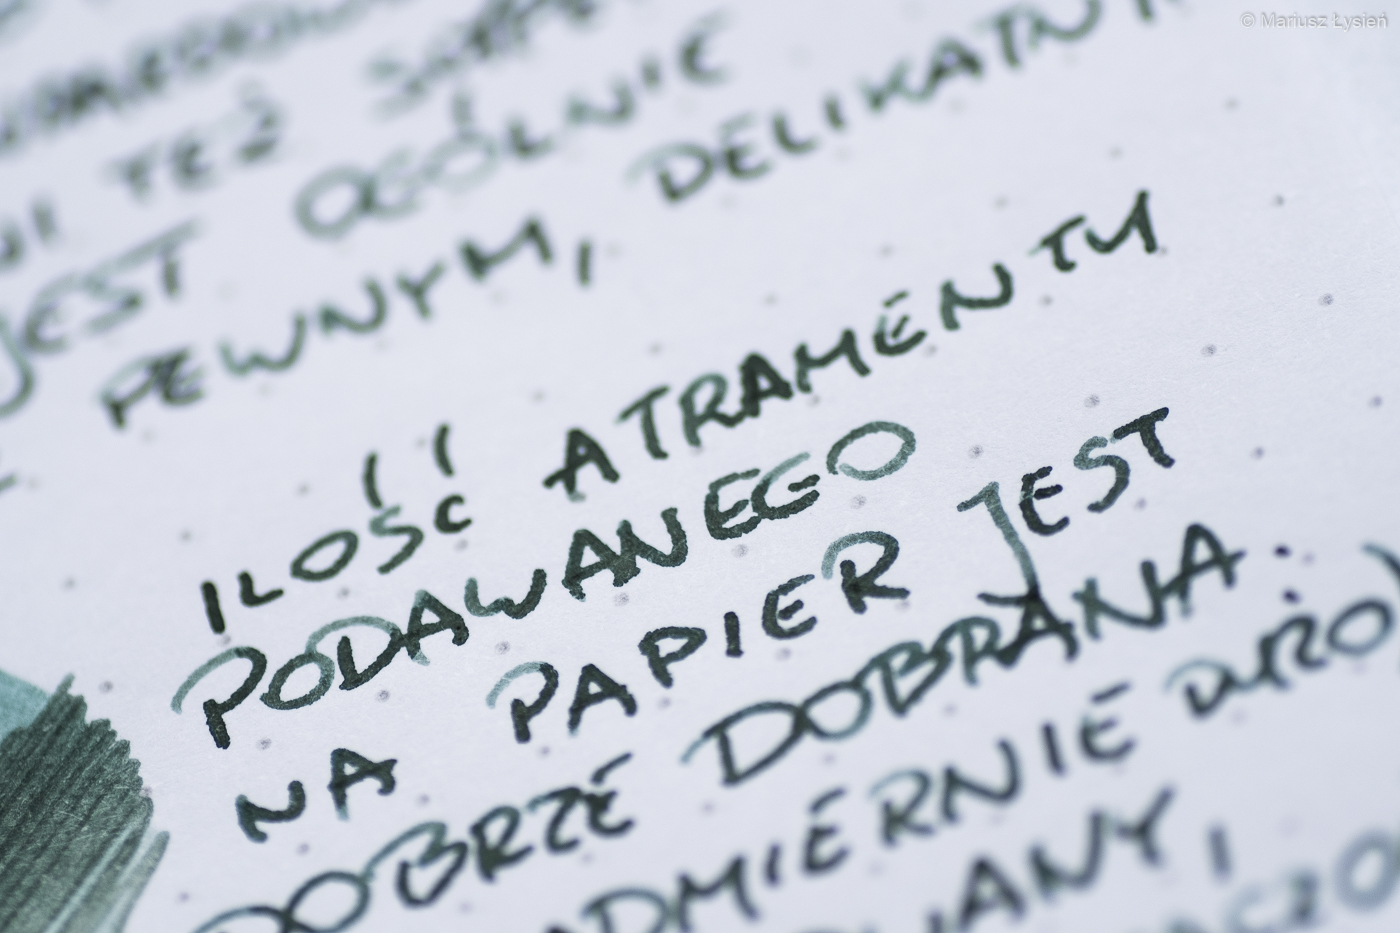 © Mariusz Łysień
TEŻ
JEST OGÓLNIE
PEWNYM, DELIKATN
ILOŚĆ ATRAMENTU
PODAWANEGO
NA PAPIER JEST
DOBRZE DOBRANA.
ADMIERNIE DUŻO)